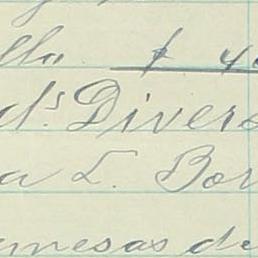 lla $ 40
ds Divers
a L. Bor
emesas de